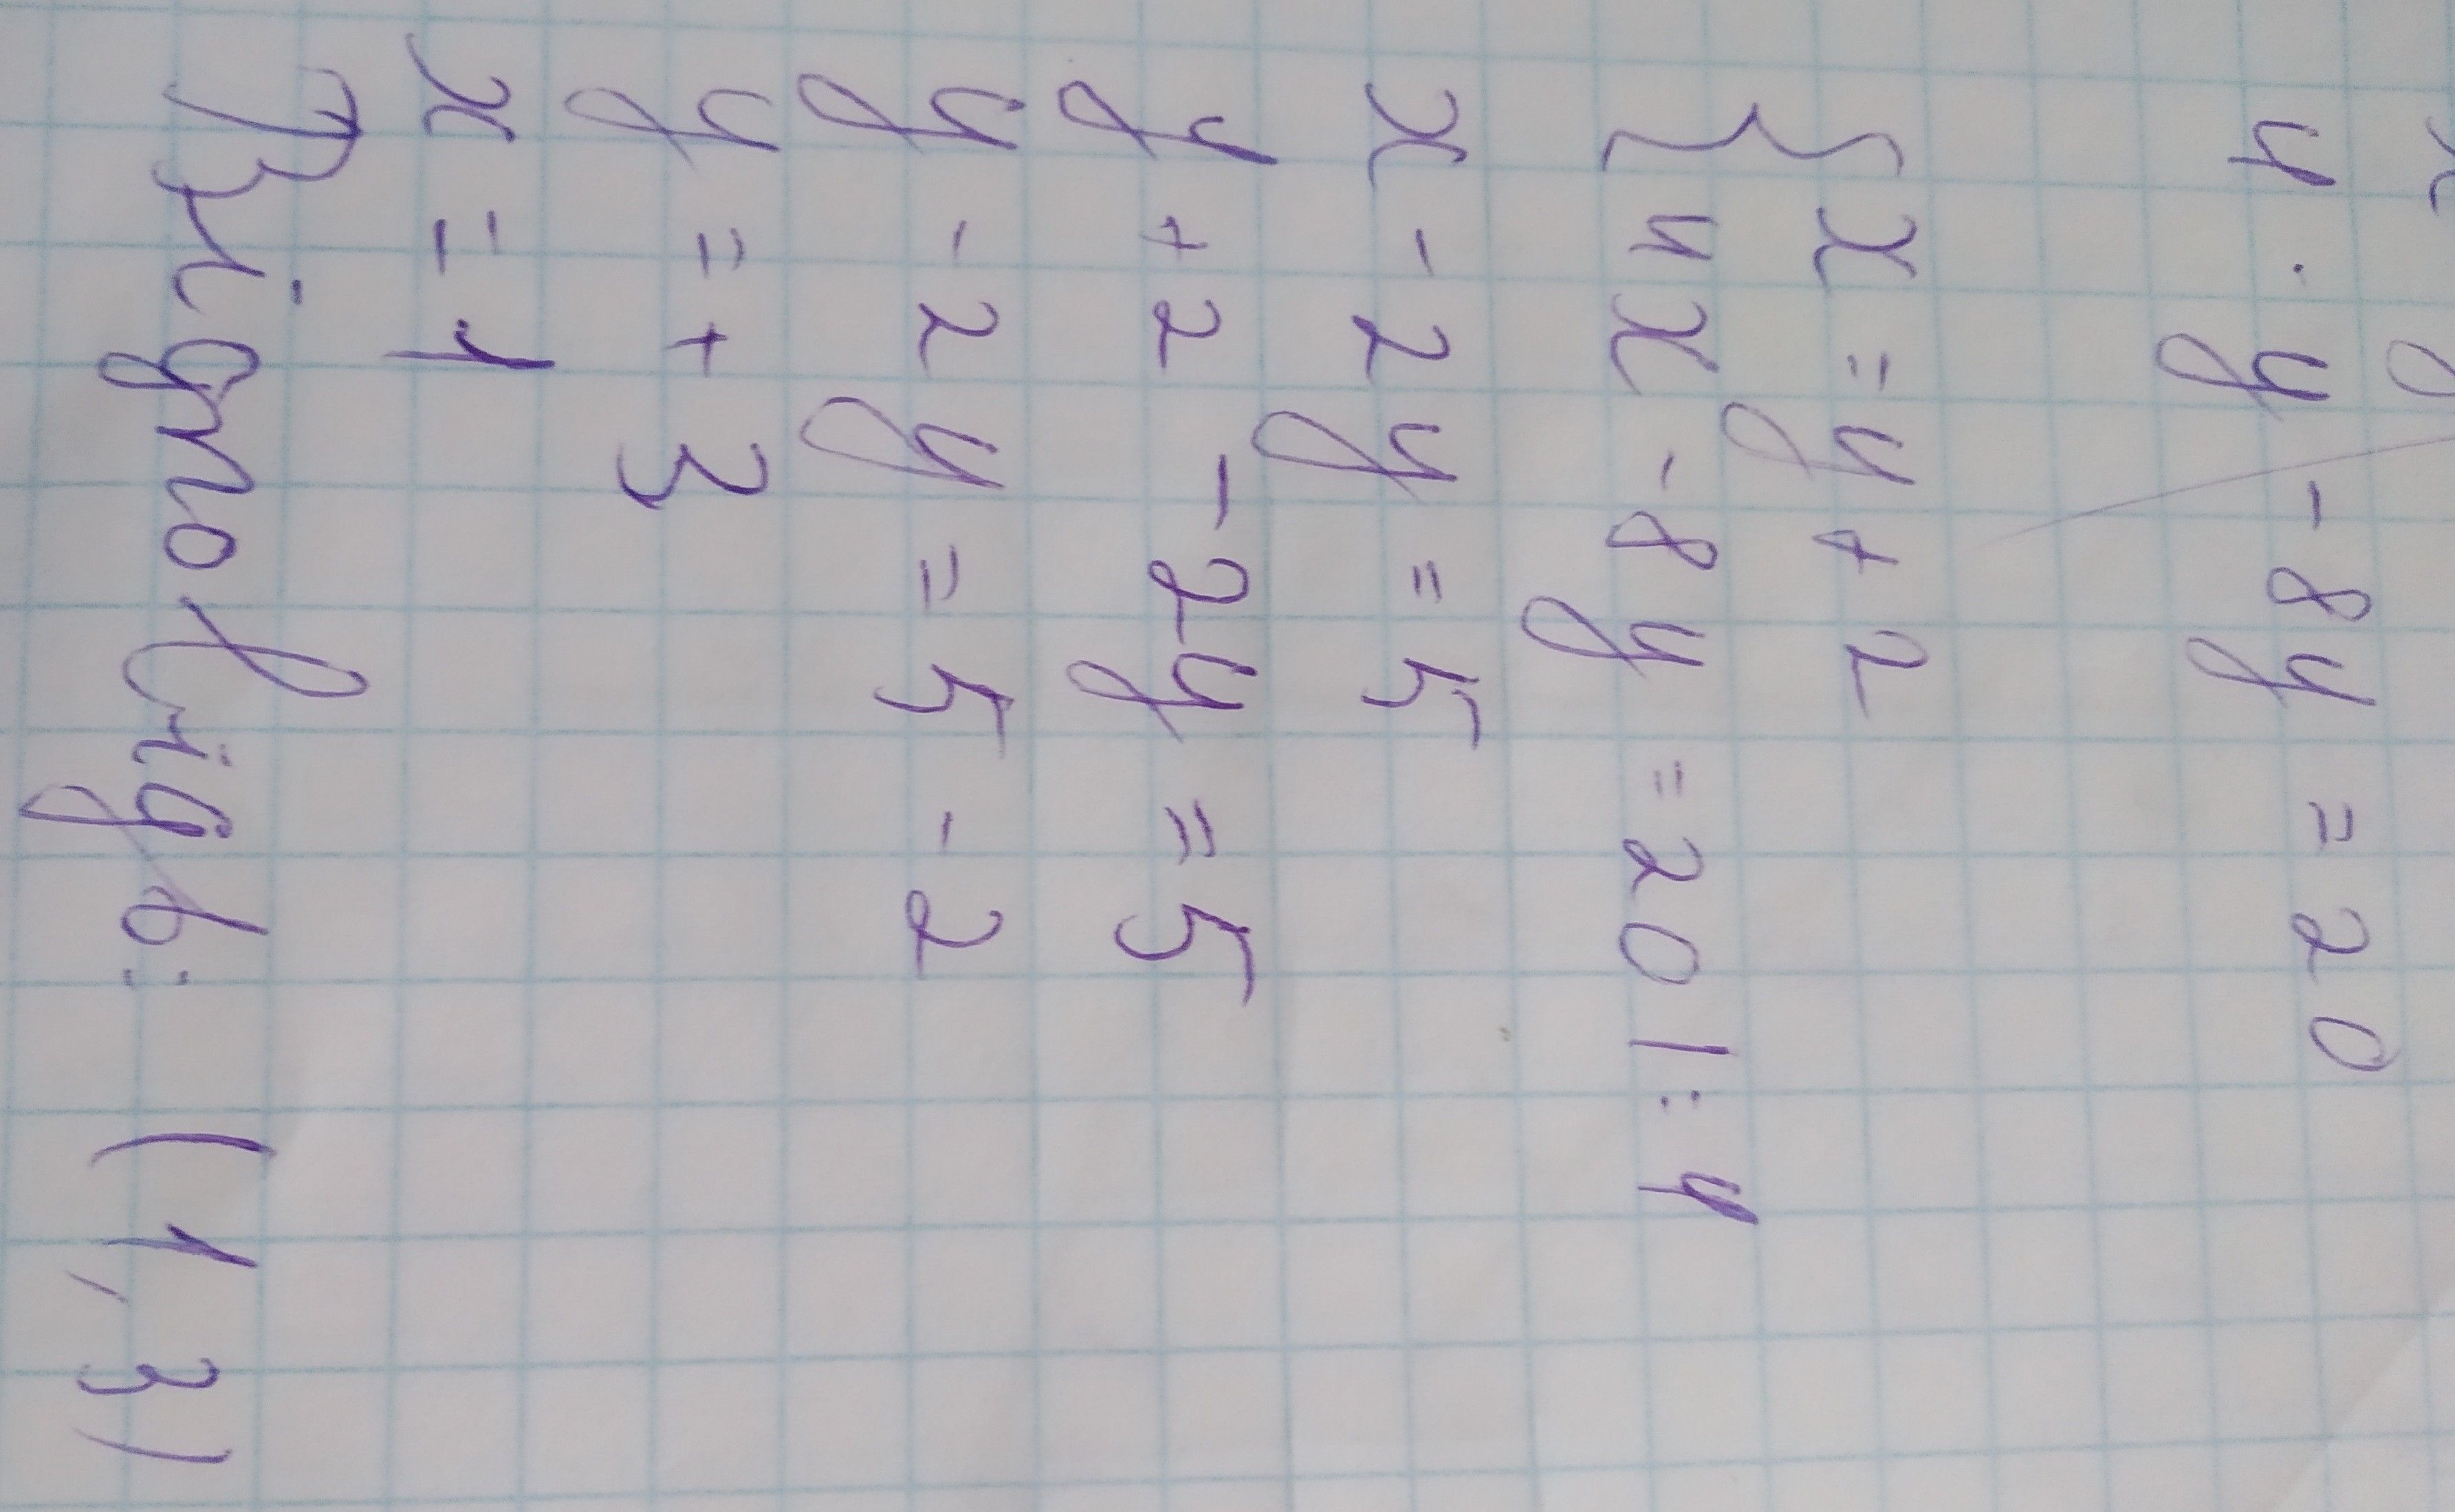 4 · y - 8y = 20
{ x = y + 2
4x - 8y = 20 | : 4
x - 2y = 5
y + 2 - 2y = 5
y - 2y = 5 - 2
y = + 3
x = 1
Відповідь: (1, 3)